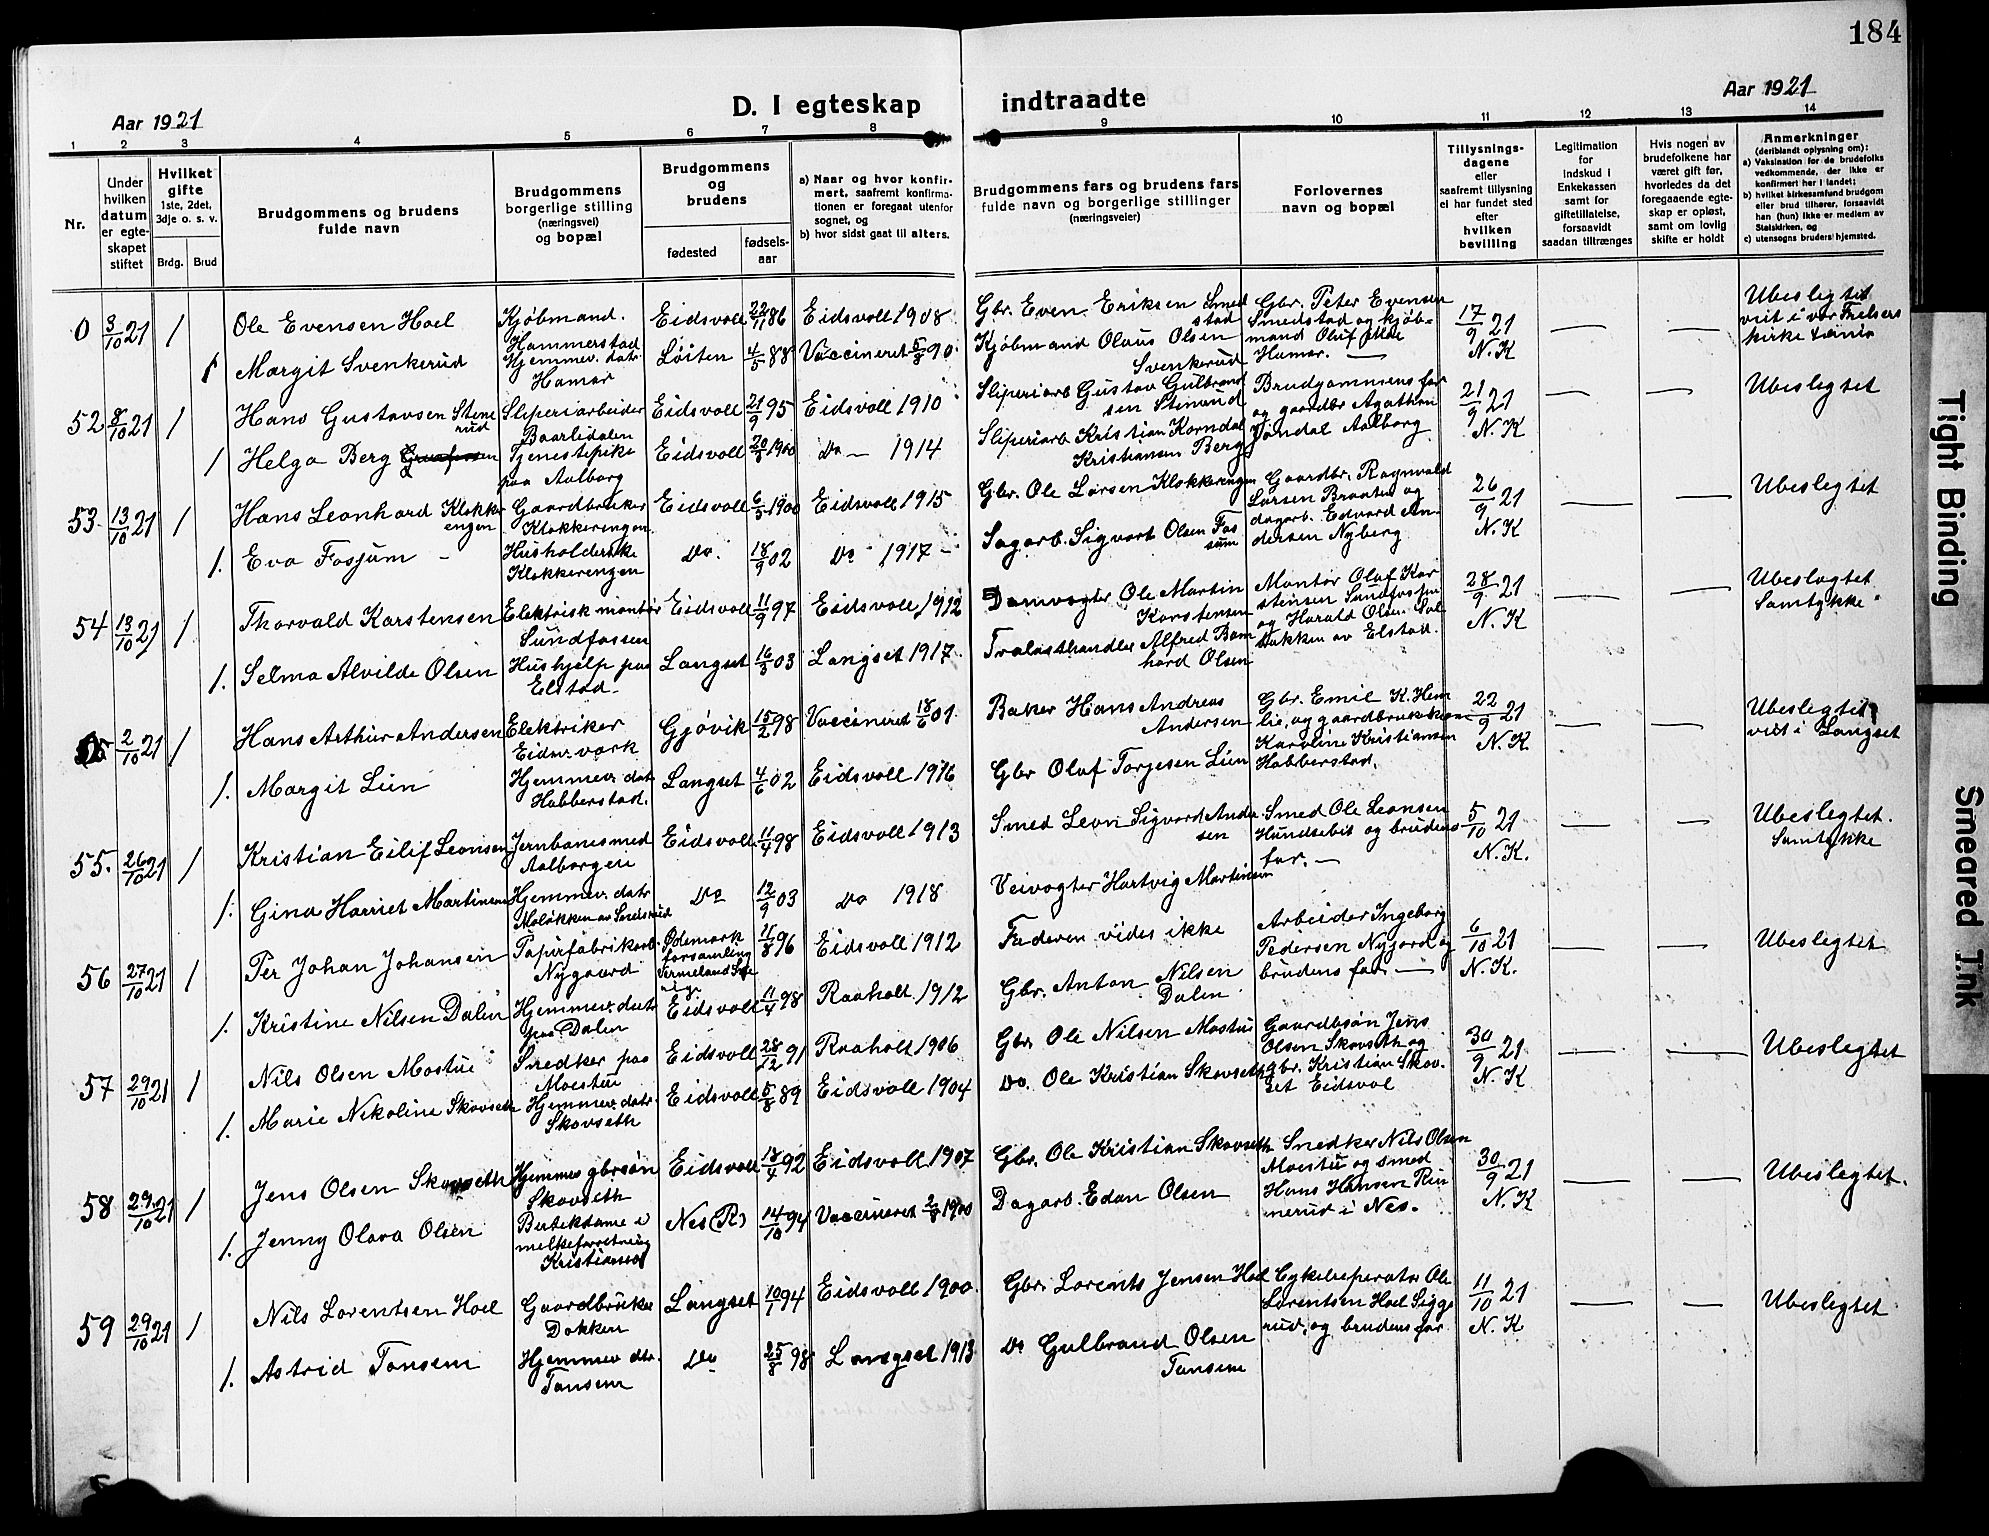 184
Aar 1921
D. I egteskap indtraadte
Aar 1921
1 2 3 4 5 6 7 8 9 10 11 12 13 14
Nr.
Under hvilken datum er egteskapet stiftet
Hvilket gifte 1ste, 2det, 3dje o. s. v.
Brdg. Brud
Brudgommens og brudens fulde navn
Brudgommens borgerlige stilling (næringsvei) og bopæl
Brudgommens og brudens
fødested
fødsels-aar
a) Naar og hvor konfirmert, saafremt konfirmationen er foregaat utenfor sognet, og
b) hvor sidst gaat til alters.
Brudgommens fars og brudens fars fulde navn og borgerlige stillinger (næringsveier)
Forlovernes navn og bopæl
Tillysningsdagene eller saafremt tillysning ei har fundet sted efter hvilken bevilling
Legitimation for indskud i Enkekassen samt for giftetillatelse, forsaavidt saadan tiltrænges
Hvis nogen av brudefolkene har været gift før, hvorledes da det foregaaende egteskap er opløst, samt om lovlig skifte er holdt
Anmerkninger (deriblandt oplysning om): a) Vaksination for de brudefolks vedkommende, der ikke er konfirmert her i landet; b) hvilket kirkesamfund brudgom eller brud tilhører, forsaavidt han (hun) ikke er medlem av Statskirken, og c) utensogns bruders hjemsted.
0 3/10 21 1 Ole Evensen Hoel Kjøbmand. Hammerstad Eidsvoll 22/11 86 Eidsvoll 1908 Gbr. Even Eriksen Smedstad Gbr. Peter Evensen Smedstad og kjøbmand Oluf Moe Hamar. — 17/9 21 N. K — — Ubeslegtet viet i vor Frelsers kirke
1 Margit Svenkerud Hjemmev. datr Hamar Løiten 4/5 88 Vaccineret 5/8 90. Kjøbmand Olaus Olsen Svenkerud
52 8/10 21 1 Hans Gustavsen Stenerud Sliperiarbeider Baarlidalen Eidsvoll 21/9 95 Eidsvoll 1910 Sliperiarb Gustav Gulbrandsen Stenerud Brudgommens far og gaardbr Agathon Tøndal Aalborg 21/9 21 N. K — — Ubeslegtet
1 Helga Berg Tjenestepike paa Aalborg Eidsvoll 20/3 1900 Do — 1914 Sliperiarb Kristian Korndal Kristiansen Berg
53 13/10 21 1 Hans Leonhard Klokkerengen Gaardbruker Klokkerengen Eidsvoll 6/3 1900 Eidsvoll 1915 Gbr. Ole Larsen Klokkerengen Gaardbr. Ragnvald Larsen Braaten og dagarb. Edvard Andersen Nyberg 26/9 21 N. K — — Ubeslegtet
1. Eva Fosjum Husholderske Klokkerengen Do. 18/9 02 Do 1917 — Sagarb. Sigvart Olsen Fossum
54 13/10 21 1 Thorvald Karstensen Elektrisk montør Sundfossen Eidsvoll 11/9 97 Eidsvoll 1912 Damvogter Ole Martin Karstensen Montør Olaf Karstensen Sundfossen og Harald Olsen Solbakken av Elstad. 28/9 21 N. K — — Ubeslegtet Samtykke
1. Selma Alvilde Olsen Hushjelp paa Elstad — Langset 16/3 03 Langset 1917. Trælasthandler Alfred Bernhard Olsen
2/10 21 1 Hans Arthur Andersen Elektriker Eidsv. værk Gjøvik 15/2 98 Vaccineret 18/6 01 Baker Hans Andreas Andersen Gbr. Emil K. Hemlie, og gaardbrukerkone Karoline Kristiansen Habberstad. 22/9 21 N. K — — Ubeslegtet viet i Langset
1. Margit Lien Hjemmev. datr Habberstad. Langset 4/6 02 Eidsvoll 1916 Gbr Olaf Torjesen Lien
55. 26/10 21 1 Kristian Eilif Leonsen Jernbanesmed Aalborgeie Eidsvoll 11/4 98 Eidsvoll 1913 Smed Leon Sigvard Andersen Smed Ole Leonsen Hundsebit og brudens far. — 5/10 21 N. K. — — Ubeslegtet. Samtykke
1. Gina Harriet Martinsen Hjemmev. datr Do 12/9 03 Do 1918 Veivogter Hartvig Martinsen
56 27/10 21 1 Per Johan Johansen Papirfabrikarb Nygaard Ødemark forsamling Vermeland Sverige 21/8 96 Eidsvoll 1912 Faderen vides ikke Arbeider Ingeborg Pedersen Nygard og brudens far. — 6/10 21 N. K. — — Ubeslegtet
1. Kristine Nilsen Dalen Hjemmev. datr paa Dalen Eidsvoll 11/4 98 Raaholt 1912 Gbr. Anton Nilsen Dalen
57 29/10 21 1 Nils Olsen Mostue Snedker paa Moestue Eidsvoll 28/12 91 Raaholt 1906 Gbr Ole Nilsen Mostue Gaardbsøn Jens Olsen Skovseth og gbr. Kristian Skovset Eidsvol 30/9 21 N. K — — Ubeslegtet
1. Marie Nikoline Skovseth Hjemmev. datr. Skovseth Eidsvoll 5/8 89 Eidsvoll 1904 Do. Ole Kristian Skovseth
58 29/10 21 1 Jens Olsen Skovseth Hjemmev gbrsøn Skovseth Eidsvoll 18/4 92 Eidsvoll 1907 Gbr. Ole Kristian Skovseth Snedker Nils Olsen Moestue og smed Hans Hansen Rinnerud i Nes. 30/9 21 N. K — — Ubeslegtet.
1. Jenny Olava Olsen Butikdame i melkeforretning Kristiania Nes (R) 14/10 94 Vaccineret 2/8 1900 Dagarb. Edan Olsen
59 29/10 21 1 Nils Lorentsen Hoel Gaardbruker Dokken Langset 10/1 94 Eidsvoll 1900. Gbr. Lorents Jensen Hoel Cykelreperatør Ole Lorentsen Hoel Siggerud, og brudens far 11/10 21 N. K — — Ubeslegtet
1. Astrid Tønsem Hjemmev dtr. Tønsem Do 25/8 98 Langset 1913 Do Gulbrand Olsen Tønsem
Tight Binding
Smeared Ink